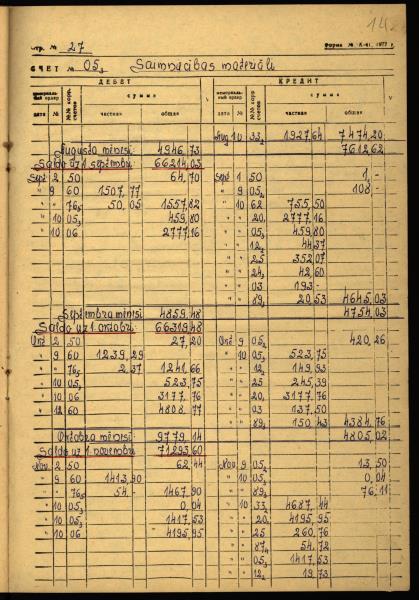 14.
Стр. № 27
Форма № К-41, 1977 г.
СЧЕТ № 05₃ Saimniecības materiāli
ДЕБЕТ КРЕДИТ
мемориальный ордер № корр. счетов сумма мемориальный ордер № корр. счетов сумма
дата № частная общая дата № частная общая
Aug 10 33₂ 1927,64 7474,20
Augusta mēnesi 4946,73 7612,62
Saldo uz 1 septembri 66214,03
Sept 2 50 64,70 Sept 1 50 1,-
" 9 60 1507,77 " 9 05₂ 108,-
" " 76₅ 50,05 1557,82 " 10 62 755,50
" 10 05₃ 459,80 " " 20₁ 2777,16
" 10 06 2777,16 " " 05₃ 459,80
" " 12₂ 44,37
" " 25 352,07
" " 24₃ 42,60
" " 03 193,-
" " 89₃ 20,53 4645,03
Septembra mēnesi 4859,48 4754,03
Saldo uz 1 oktobri 66319,48
Okt 2 50 27,20 Okt 9 05₂ 420,26
" 9 60 1239,29 " 10 05₃ 523,75
" " 76₅ 2,37 1241,66 " " 12₂ 149,93
" 10 05₃ 523,75 " " 25 245,39
" 10 06 3177,76 " " 20₁ 3177,76
" 12 60 4808,77 " " 03 137,50
" " 89₃ 150,43 4384,76
Oktobra mēnesi 9779,14 4805,02
Saldo uz 1 novembri 71293,60
Nov. 2 50 62,44 Nov. 9 05₂ 13,50
" 9 60 1413,90 " 10 05₁ 0,04
" " 76₅ 54,- 1467,90 " " 89₃ 76,11
" 10 05₁ 0,04 " 10 33₂ 4687,44
" 10 05₃ 1417,53 " " 20₁ 4195,95
" 10 06 4195,95 " " 25 260,76
" " 87₄ 54,72
" " 05₃ 1417,53
" " 12₂ 19,73